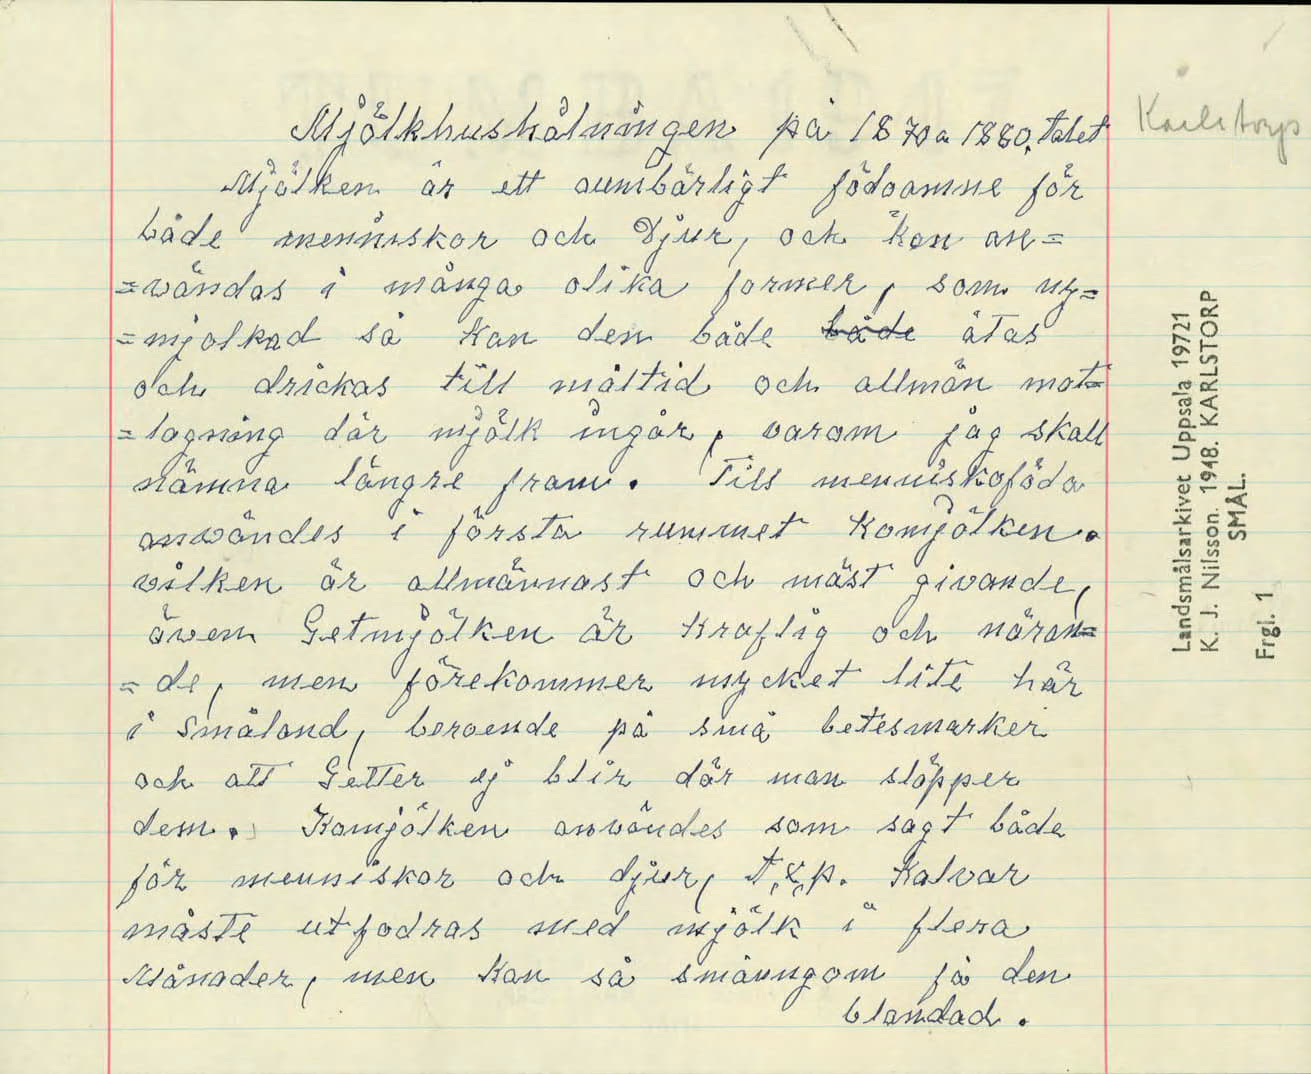 Mjölkhushålningen på 1870a 1880,talet
Mjölken är ett oumbärligt födoämne för
både menniskor och Djur, och kan an=
=wändas i många olika former, som ny=
=mjolkad så kan den både både ätas
och drickas till måltid och allmän mat=
=lagning där mjölk ingår, varom jag skall
nämna längre fram. Till menniskoföda
anwändes i första rummet Komjölken.
vilken är allmännast och mäst givande,
även Getmjölken är kraftig och näran=
=de, men förekommer mycket lite här
i Småland, beroende på små betesmarker
och att Getter ej blir där man släpper
dem. Komjölken anwändes som sagt både
för menniskor och djur, t,x,p. Kalvar
måste utfodras med mjölk i flera
Månader, men kan så småungom få den
blandad.
Karlstorp
Landsmålsarkivet Uppsala 19721
K. J. Nilsson. 1948. KARLSTORP
SMÅL.
Frgl. 1